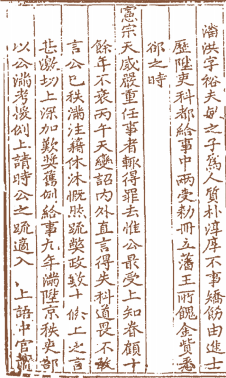 潘洪字裕夫妙之子爲人質朴淳厚不事矯飾由進士
歷陞吏科都給事中两受勑冊立藩王所餽金貲悉
郤之時
憲宗天威嚴重任事者輒得罪去惟公最受上知眷顧十
餘年不衰丙午天變詔内外直言得失科道畏不敢
言公已秩滿注籍休沐慨然疏獘政数十條上之言
甚激切上深加歎奬舊例給事九年滿陞京秩吏部
以公滿考援例上請時公之疏適入 上語中官